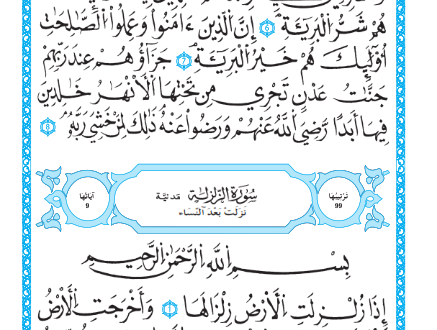 هُمْ شَرُّ الْبَرِيَّةِ ٦ إِنَّ الَّذِينَ ءَامَنُواْ وَعَمِلُواْ الصَّٰلِحَٰتِ
أُوْلَٰٓئِكَ هُمْ خَيْرُ الْبَرِيَّةِ ٧ جَزَآؤُهُمْ عِندَ رَبِّهِمْ
جَنَّٰتُ عَدْنٍ تَجْرِي مِن تَحْتِهَا الْأَنْهَٰرُ خَٰلِدِينَ
فِيهَا أَبَدًا رَّضِيَ اللَّهُ عَنْهُمْ وَرَضُواْ عَنْهُ ذَٰلِكَ لِمَنْ خَشِيَ رَبَّهُ ٨
تَرْتِيبُهَا
99
سُورَةُ الزَّلْزَلَةِ مَدَنِيَّة
نَزَلَتْ بَعْدَ النِّسَاء
آيَاتُهَا
9
بِسْمِ اللَّهِ الرَّحْمَٰنِ الرَّحِيمِ
إِذَا زُلْزِلَتِ الْأَرْضُ زِلْزَالَهَا ١ وَأَخْرَجَتِ الْأَرْضُ